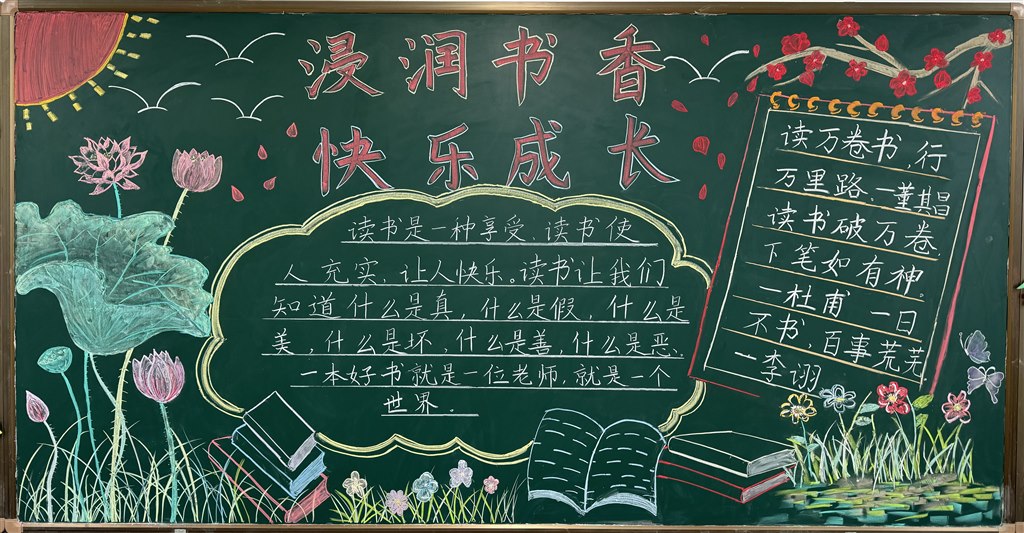 浸润书香
快乐成长
读书是一种享受，读书使
人充实，让人快乐。读书让我们
知道什么是真，什么是假，什么是
美，什么是坏，什么是善，什么是恶，
一本好书就是一位老师，就是一个
世界。
读万卷书，行
万里路。一董其昌
读书破万卷，
下笔如有神。
一杜甫 一日
不书，百事荒芜
一李诩